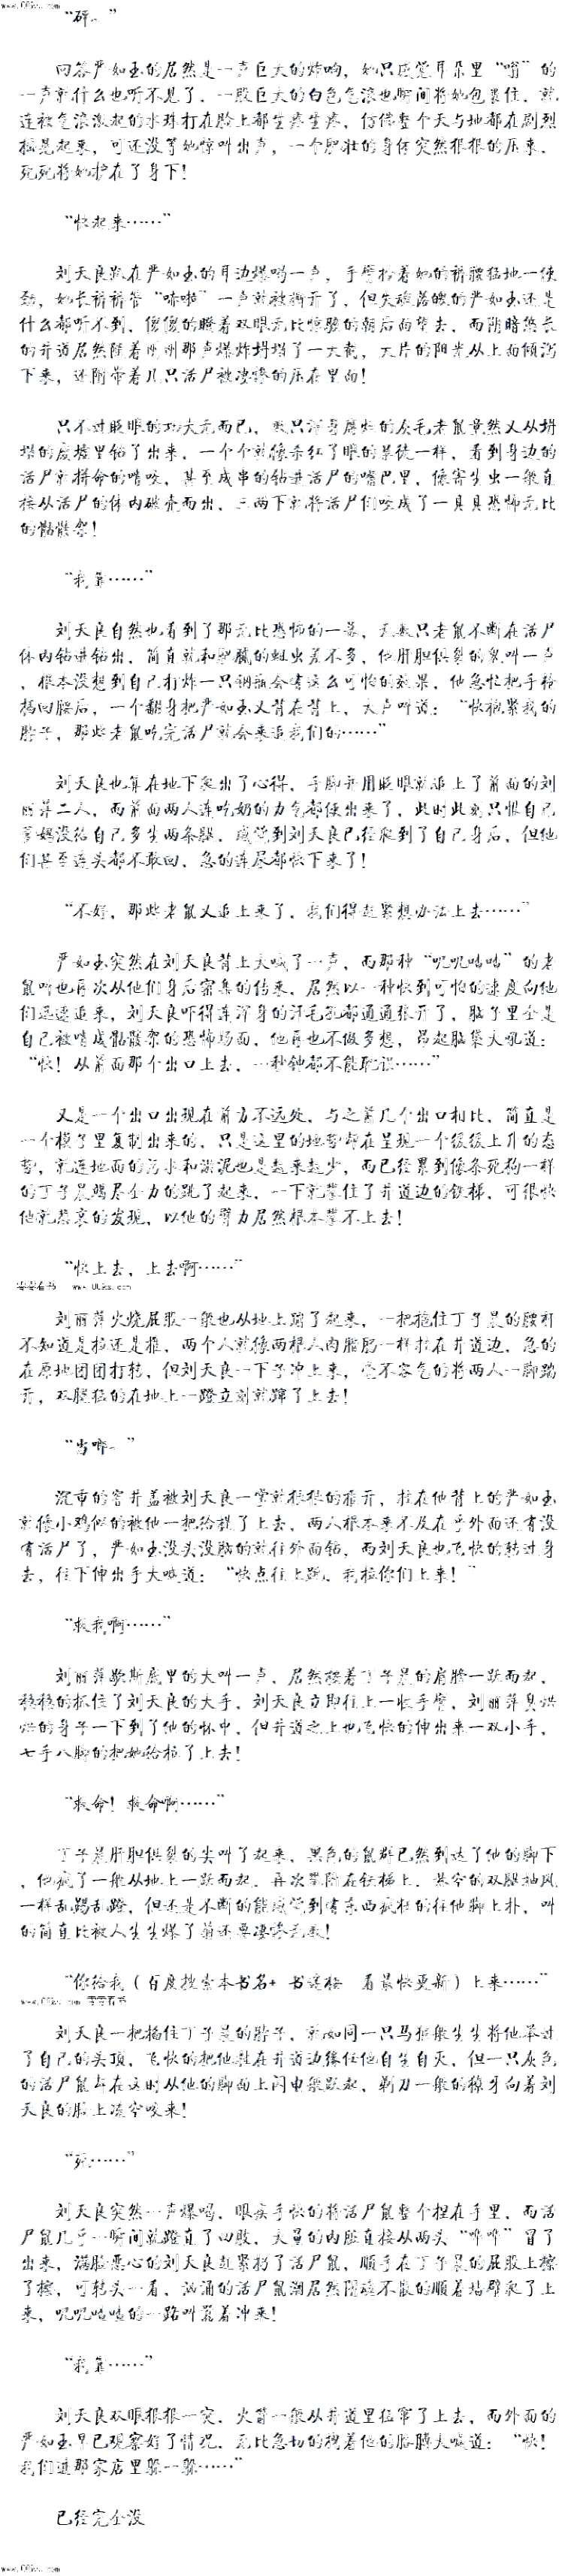 www.00ks.com
“砰~”
回答严如玉的居然是一声巨大的炸响，她只感觉耳朵里“嗡”的
一声就什么也听不见了，一股巨大的白色气浪也瞬间将她包裹住，就
连被气浪激起的水珠打在脸上都生疼生疼，仿佛整个天与地都在剧烈
摇晃起来，可还没等她惊叫出声，一个肥壮的身体突然狠狠的压来，
死死将她护在了身下！
“快起来……”
刘天良趴在严如玉的耳边爆喝一声，手臂拎着她的裤腰猛地一使
劲，她长裤裤管“哧啦”一声就被撕开了，但失魂落魄的严如玉还是
什么都听不到，傻傻的瞪着双眼无比惊骇的朝后面望去，而阴暗悠长
的井道居然随着刚刚那声爆炸坍塌了一大截，大片的阳光从上面倾泻
下来，还附带着几只活尸被凄惨的压在里面！
只不过眨眼的功夫而已，数只浑身腐烂的灰毛老鼠竟然又从坍
塌的废墟里钻了出来，一个个就像杀红了眼的暴徒一样，看到身边的
活尸就拼命的啃咬，甚至成串的钻进活尸的嘴巴里，像寄生虫一般直
接从活尸的体内破壳而出，三两下就将活尸们咬成了一具具恐怖无比
的骷髅架！
“我靠……”
刘天良自然也看到了那无比恐怖的一幕，无数只老鼠不断在活尸
体内钻进钻出，简直就和肥腻的蛆虫差不多，他肝胆俱裂的哀叫一声
，根本没想到自己打炸一只钢瓶会有这么可怕的效果，他急忙把手枪
插回腰后，一个翻身把严如玉又背在背上，大声吼道：“快抱紧我的
脖子，那些老鼠吃完活尸就会来追我们的……”
刘天良也算在地下爬出了心得，手脚并用眨眼就追上了前面的刘
丽萍二人，而前面两人连吃奶的力气都使出来了，此时此刻只恨自己
爹妈没给自己多生两条腿，感觉到刘天良已经爬到了自己身后，但他
们甚至连头都不敢回，急的连尿都快下来了！
“不好，那些老鼠又追上来了，我们得赶紧想办法上去……”
严如玉突然在刘天良背上大喊了一声，而那种“吱吱喳喳”的老
鼠叫也再次从他们身后密集的传来，居然以一种快到可怕的速度向他
们迅速追来，刘天良吓得连浑身的汗毛孔都通通张开了，脑子里全是
自己被啃成骷髅架的恐怖场面，他再也不做多想，昂起脑袋大吼道：
“快！从前面那个出口上去，一秒钟都不能耽误……”
又是一个出口出现在前方不远处，与之前几个出口相比，简直是
一个模子里复制出来的，只是这里的地势却在呈现一个缓缓上升的态
势，就连地面的污水和淤泥也是越来越少，而已经累到像条死狗一样
的丁子晨竭尽全力的跳了起来，一下就攀住了井道边的铁梯，可很快
他就悲哀的发现，以他的臂力居然根本攀不上去！
“快上去，上去啊……”
零零看书 www.00ks.com
刘丽萍火烧屁股一般也从地上蹦了起来，一把抱住丁子晨的腰杆
不知道是拉还是推，两个人就像两根人肉腊肠一样挂在井道边，急的
在原地团团打转，但刘天良一下子冲上来，毫不客气的将两人一脚踹
开，双腿猛的在地上一蹬立刻就蹿了上去！
“当啷~”
沉重的窨井盖被刘天良一掌就狠狠的推开，挂在他背上的严如玉
就像小鸡似的被他一把给提了上去，两人根本来不及在乎外面还有没
有活尸了，严如玉没头没脑的就往外面钻，而刘天良也飞快的转过身
去，往下伸出手大喊道：“快点往上跳，我拉你们上来！”
“救我啊……”
刘丽萍歇斯底里的大叫一声，居然按着丁子晨的肩膀一跃而起，
稳稳的抓住了刘天良的大手，刘天良立即往上一收手臂，刘丽萍臭烘
烘的身子一下到了他的怀中，但井道之上也飞快的伸出来一双小手，
七手八脚的把她给拉了上去！
“救命！救命啊……”
丁子晨肝胆俱裂的尖叫了起来，黑色的鼠群已然到达了他的脚下
，他疯了一般从地上一跃而起，再次攀附在铁梯上，悬空的双腿抽风
一样乱踢乱蹬，但还是不断的能感觉到有东西疯狂的往他脚上扑，叫
的简直比被人生生爆了菊还要凄惨无数！
“你给我（百度搜索本书名+ 书迷楼 看最快更新）上来……”
www.00ks.com 零零看书
刘天良一把掐住丁子晨的脖子，就如同一只马猴般生生将他举过
了自己的头顶，飞快的把他甩在井道边缘任他自生自灭，但一只灰色
的活尸鼠却在这时从他的脚面上闪电般跃起，剃刀一般的獠牙向着刘
天良的脸上凌空咬来！
“死……”
刘天良突然一声爆喝，眼疾手快的将活尸鼠整个捏在手里，而活
尸鼠几乎一瞬间就蹬直了四肢，大量的内脏直接从两头“哗哗”冒了
出来，满脸恶心的刘天良赶紧扔了活尸鼠，顺手在丁子晨的屁股上擦
了擦，可转头一看，汹涌的活尸鼠潮居然阴魂不散的顺着墙壁爬了上
来，吱吱喳喳的一路叫嚣着冲来！
“我靠……”
刘天良双眼狠狠一突，火箭一般从井道里猛窜了上去，而外面的
严如玉早已观察好了情况，无比急切的拽着他的胳膊大喊道：“快！
我们进那家店里躲一躲……”
已经完全没
www.00ks.com